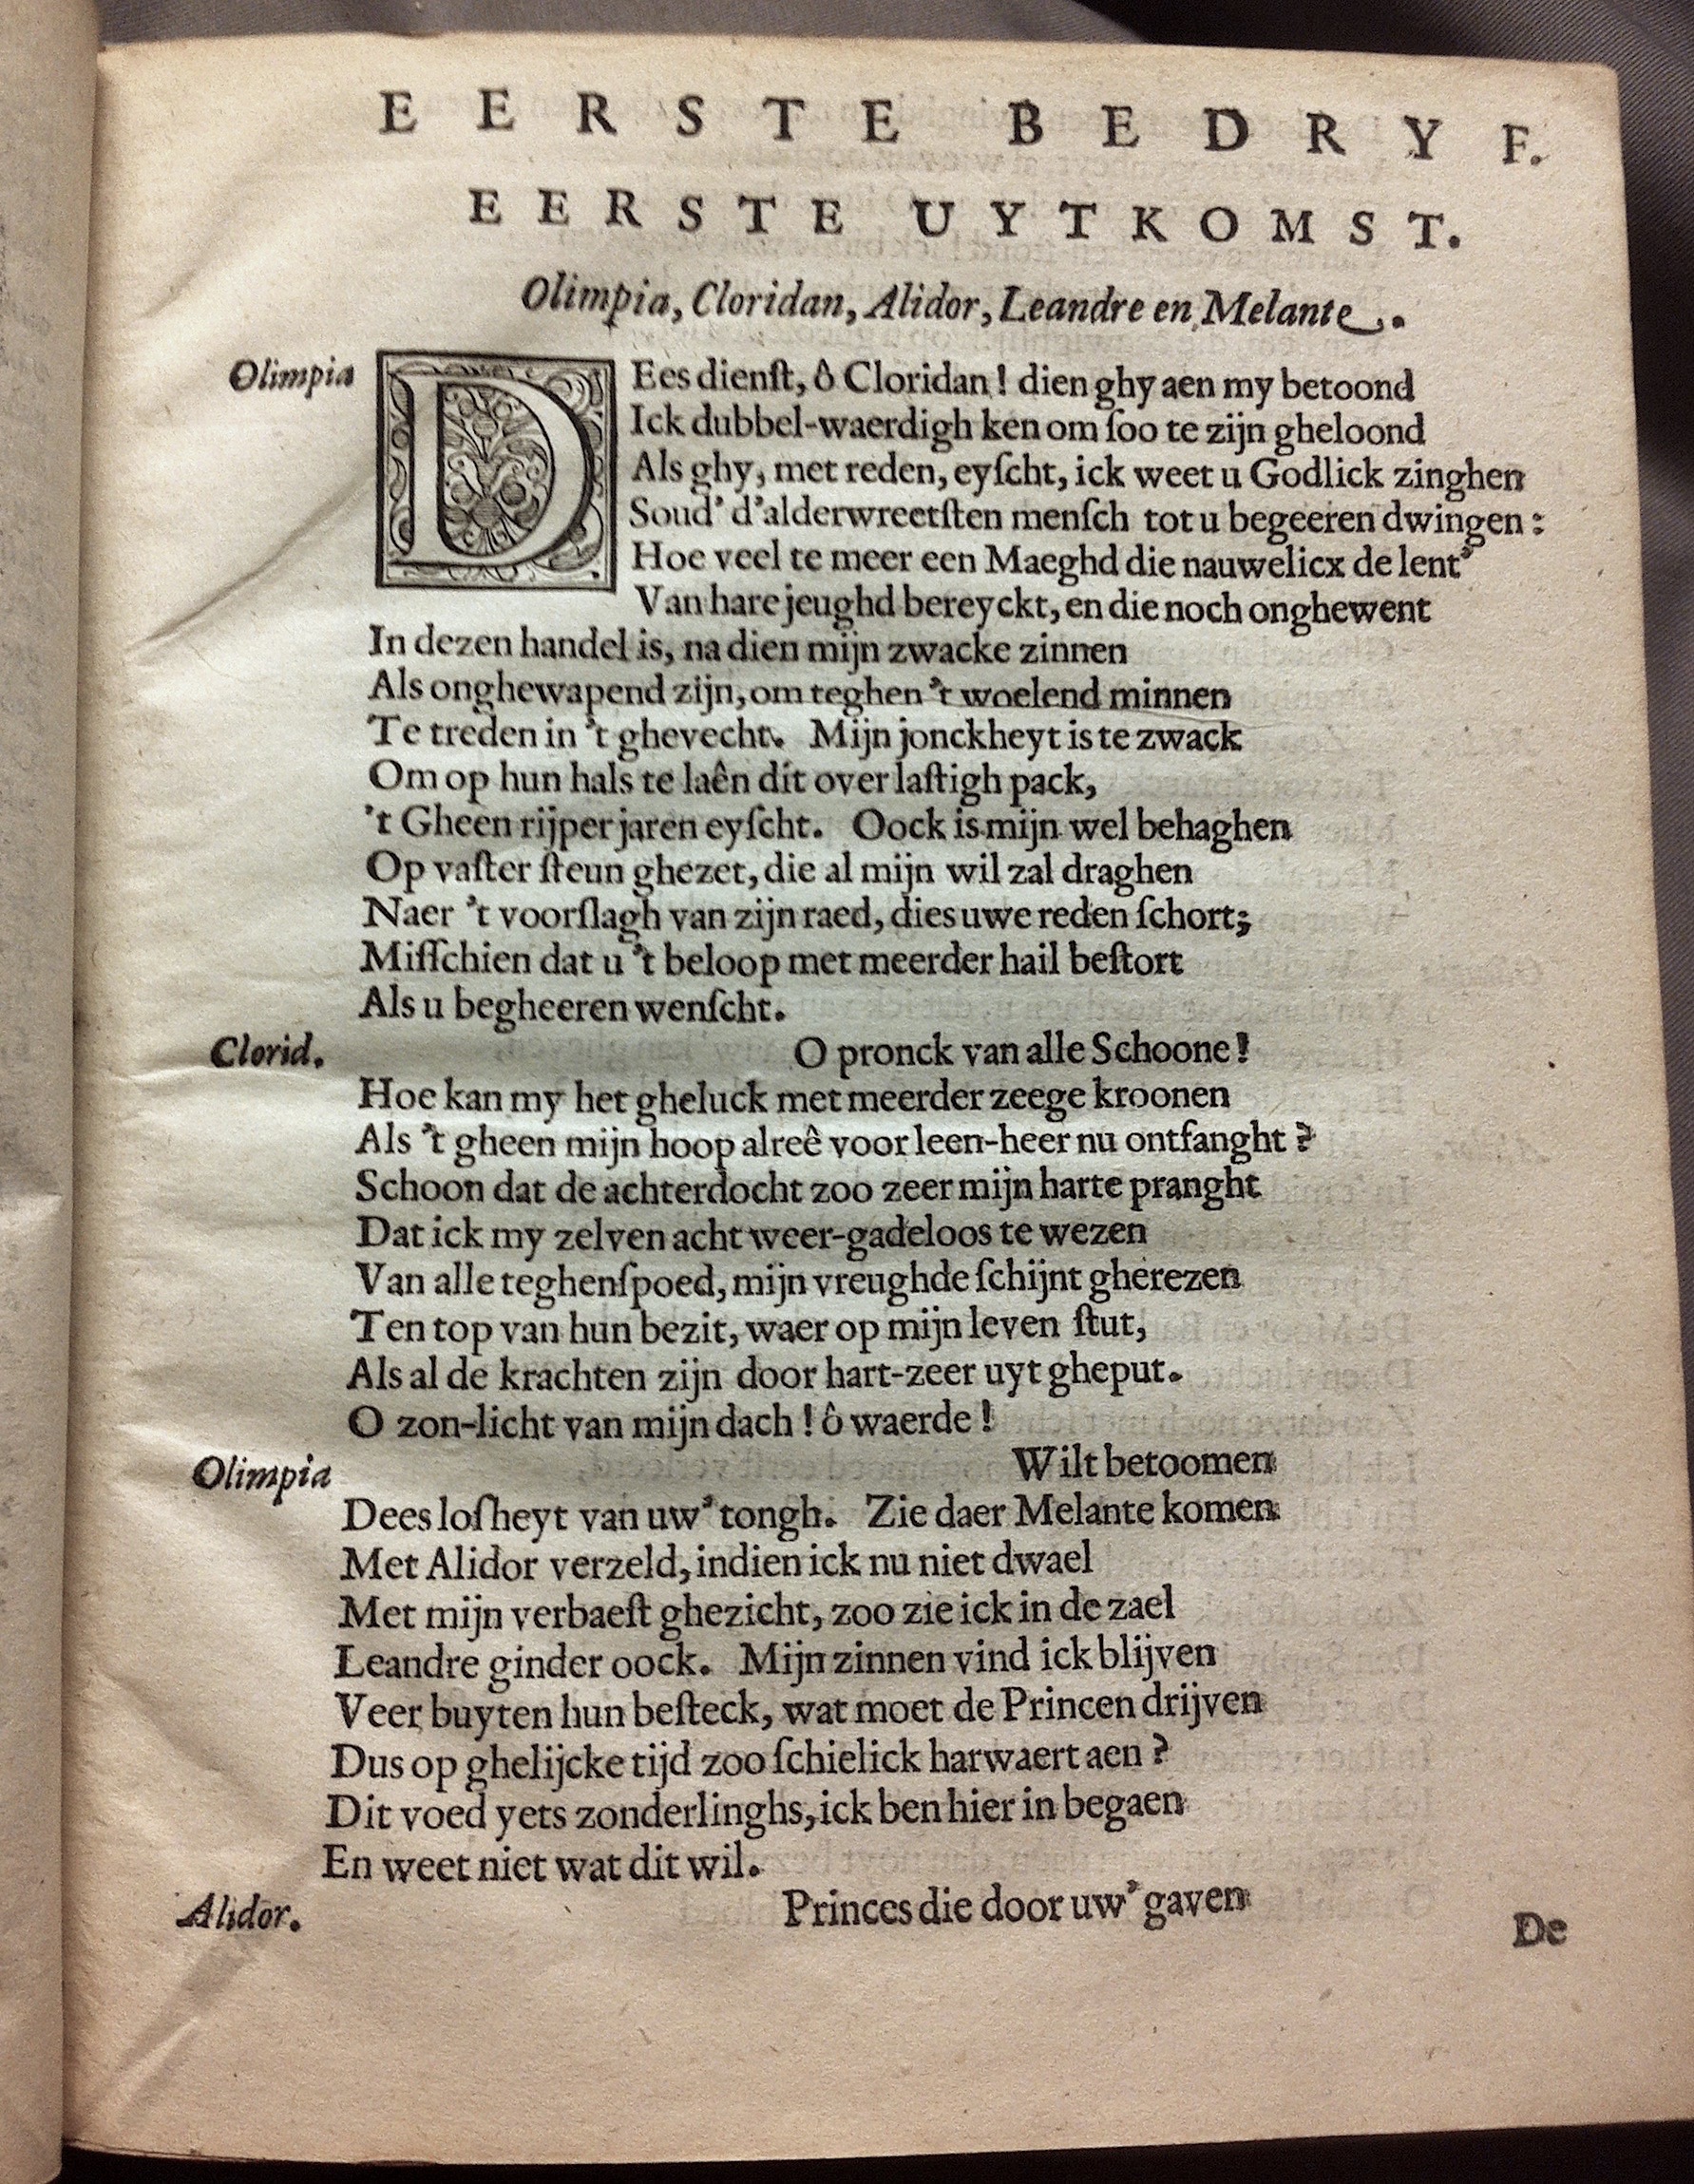 EERSTE BEDRYF.
EERSTE UYTKOMST.
Olimpia, Cloridan, Alidor, Leandre en Melante.
Olimpia DEes dienſt, ô Cloridan! dien ghy aen my betoond
Ick dubbel-waerdigh ken om ſoo te zijn gheloond
Als ghy, met reden, eyſcht, ick weet u Godlick zinghen
Soud' d'alderwreetſten menſch tot u begeeren dwingen:
Hoe veel te meer een Maeghd die nauwelicx de lent'
Van hare jeughd bereyckt, en die noch onghewent
In dezen handel is, na dien mijn zwacke zinnen
Als onghewapend zijn, om teghen 't woelend minnen
Te treden in 't ghevecht. Mijn jonckheyt is te zwack
Om op hun hals te laên dit over laſtigh pack,
't Gheen rijper jaren eyſcht. Oock is mijn wel behaghen
Op vaſter ſteun ghezet, die al mijn wil zal draghen
Naer 't voorſlagh van zijn raed, dies uwe reden ſchort;
Miſſchien dat u 't beloop met meerder hail beſtort
Als u begheeren wenſcht.
Clorid. O pronck van alle Schoone!
Hoe kan my het gheluck met meerder zeege kroonen
Als 't gheen mijn hoop alreê voor leen-heer nu ontfanght?
Schoon dat de achterdocht zoo zeer mijn harte pranght
Dat ick my zelven acht weer-gadeloos te wezen
Van alle teghenſpoed, mijn vreughde ſchijnt gherezen
Ten top van hun bezit, waer op mijn leven ſtut,
Als al de krachten zijn door hart-zeer uyt gheput.
O zon-licht van mijn dach! ô waerde!
Olimpia Wilt betoomen
Dees loſheyt van uw' tongh. Zie daer Melante komen
Met Alidor verzeld, indien ick nu niet dwael
Met mijn verbaeſt ghezicht, zoo zie ick in de zael
Leandre ginder oock. Mijn zinnen vind ick blijven
Veer buyten hun beſteck, wat moet de Princen drijven
Dus op ghelijcke tijd zoo ſchielick harwaert aen?
Dit voed yets zonderlinghs, ick ben hier in begaen
En weet niet wat dit wil.
Alidor. Princes die door uw' gaven
De